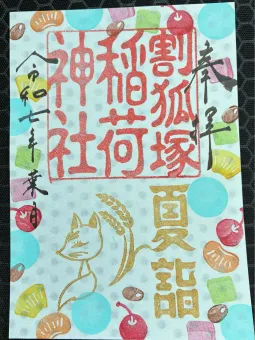 奉拝
割狐塚
稲荷
神社
夏詣
令和七年葉月